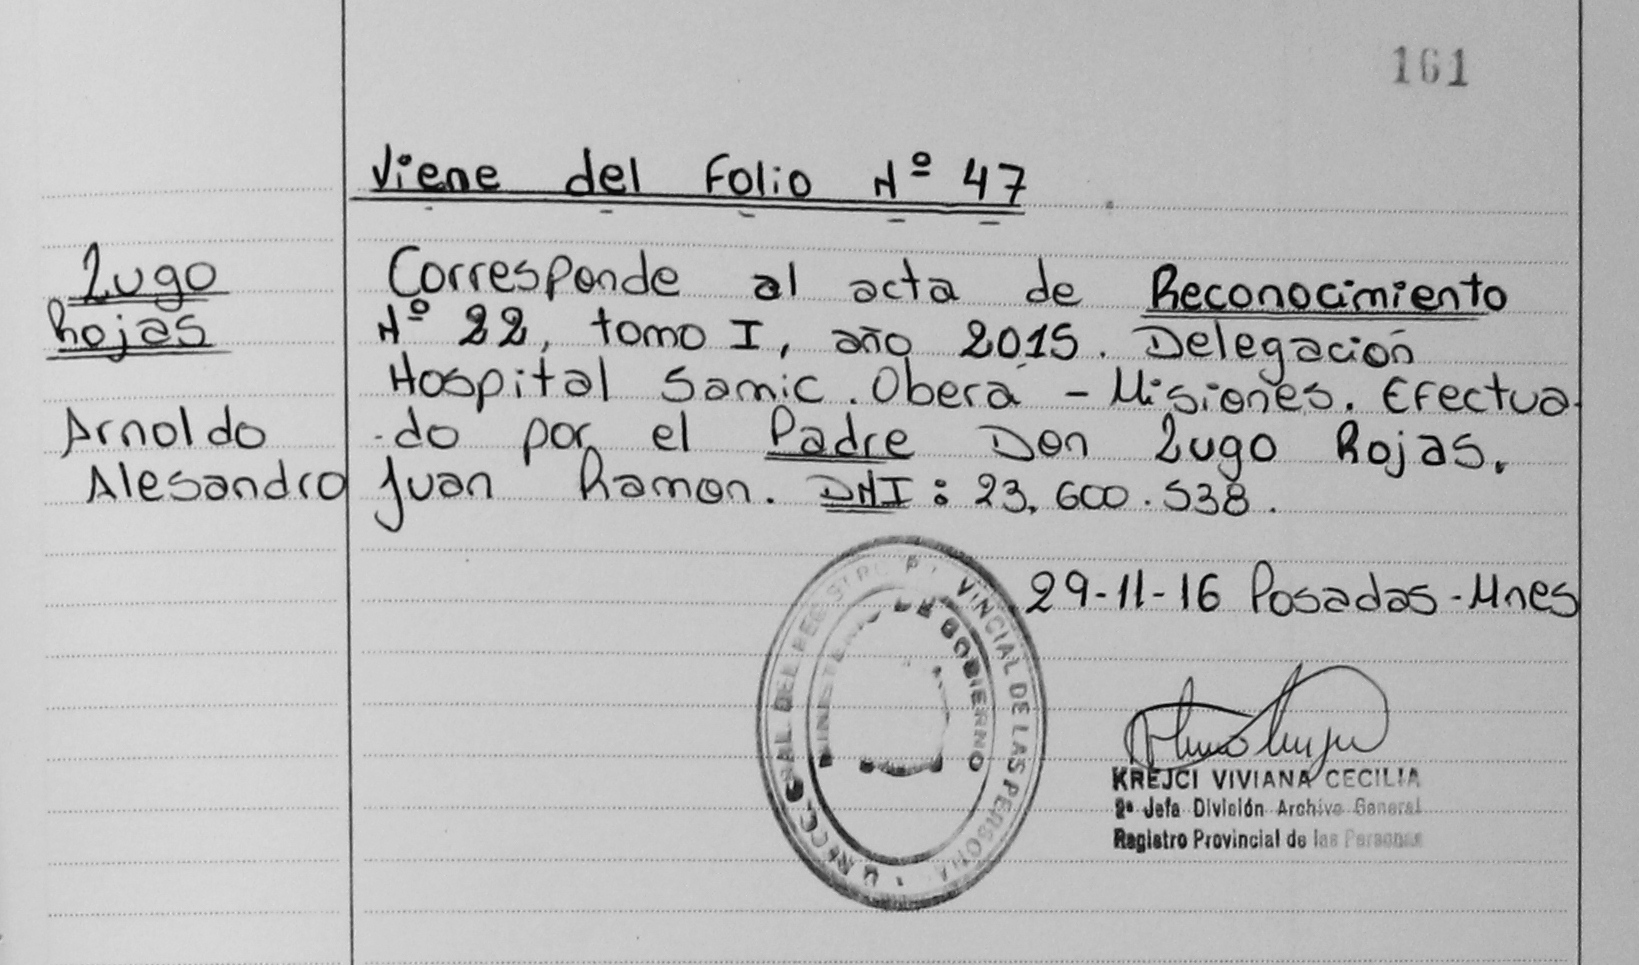 161
Viene del Folio Nº 47
Lugo
Rojas
Arnoldo
Alesandro
Corresponde al acta de Reconocimiento
Nº 22, tomo I, año 2015. Delegación
Hospital Samic. Oberá - Misiones. Efectua-
-do por el Padre Don Lugo Rojas,
Juan Ramon. DNI: 23.600.538.
29-11-16 Posadas-Mnes
GRAL. DEL REGISTRO PROVINCIAL DE LAS PERSONAS
MINISTERIO DE GOBIERNO
KREJCI VIVIANA CECILIA
2ª Jefa División Archivo General
Registro Provincial de las Personas